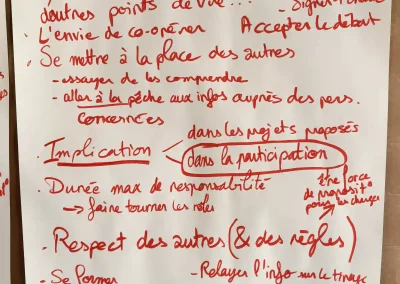 d'autres points de vue...
· L'envie de co-opérer
Accepter le débat
· Se mettre à la place des autres
- essayer de les comprendre
- aller à la pêche aux infos auprès des pers.
concernées
· Implication < dans les projets proposés
dans la participation
être force
de proposit°
pour les changer
· Durée max de responsabilité
→ faire tourner les rôles
· Respect des autres (& des règles)
- Se former
- Relayer l'info sur le tirage